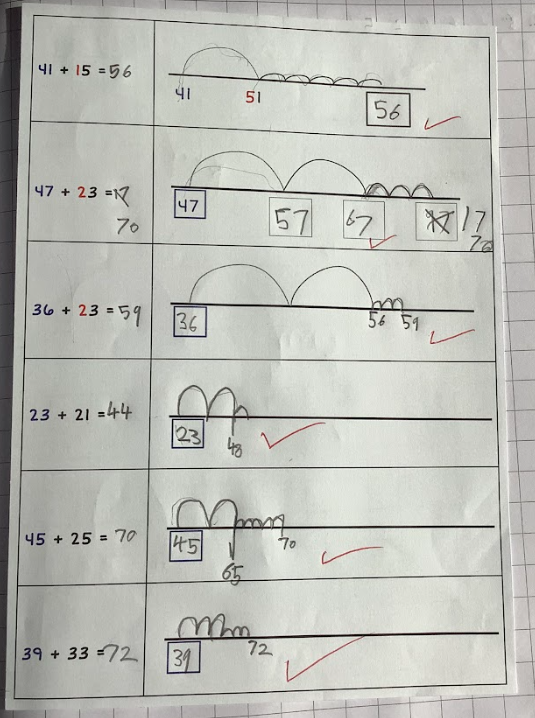 41 + 15 = 56
41 51 56
47 + 23 = 17
70
47 57 67 17
70
36 + 23 = 59
36 56 59
23 + 21 = 44
23
45 + 25 = 70
45 65 70
39 + 33 = 72
39 72